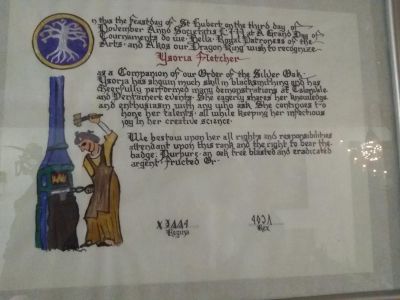 On this the feastday of St Hubert on the third day of
November Anno Societitis LIII at A Grand Day of
Tournaments do we Bella Royal Patroness of the
Arts and Akos our Dragon King wish to recognize
Ysoria Fletcher
as a Companion of our Order of the Silver Oak
Ysoria has shown much skill in blacksmithing and has
cheerfully performed many demonstrations at Calontir
and Pentamere events. She eagerly shares her knowledge
and enthusiasm with any who ask. She continues to
hone her talents, all while keeping her infectious
joy in her creative science.
We bestow upon her all rights and responsibilities
attendant upon this rank and the right to bear the
badge: Purpure, an oak tree blasted and eradicated
argent fructed Or.
Regina
Rex